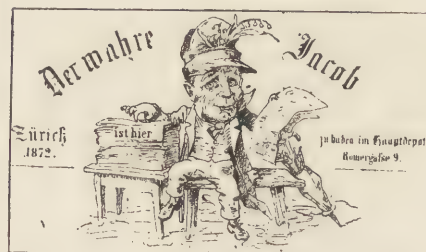 Der wahre Jacob
Zürich
1872.
ist hier
zu haben im Hauptdepot
Römergasse 9.